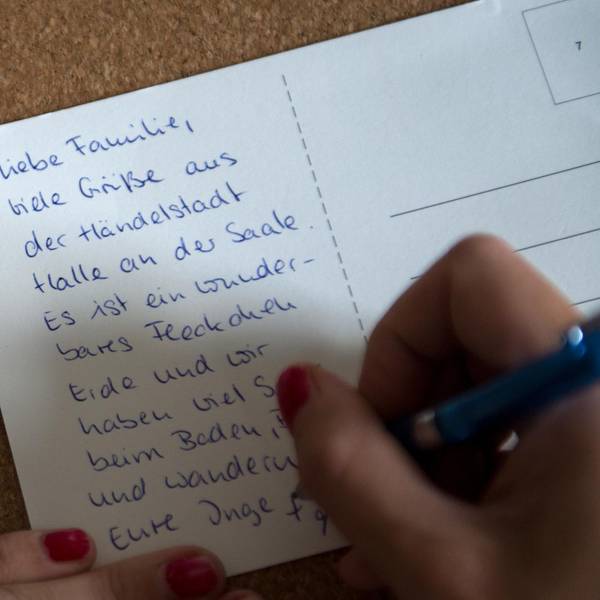 Liebe Familie,
viele Grüße aus
der Händelstadt
Halle an der Saale.
Es ist ein wunder-
bares Fleckchen
Erde und wir
haben viel S
beim Baden,
und wandern
Eure Inge
7